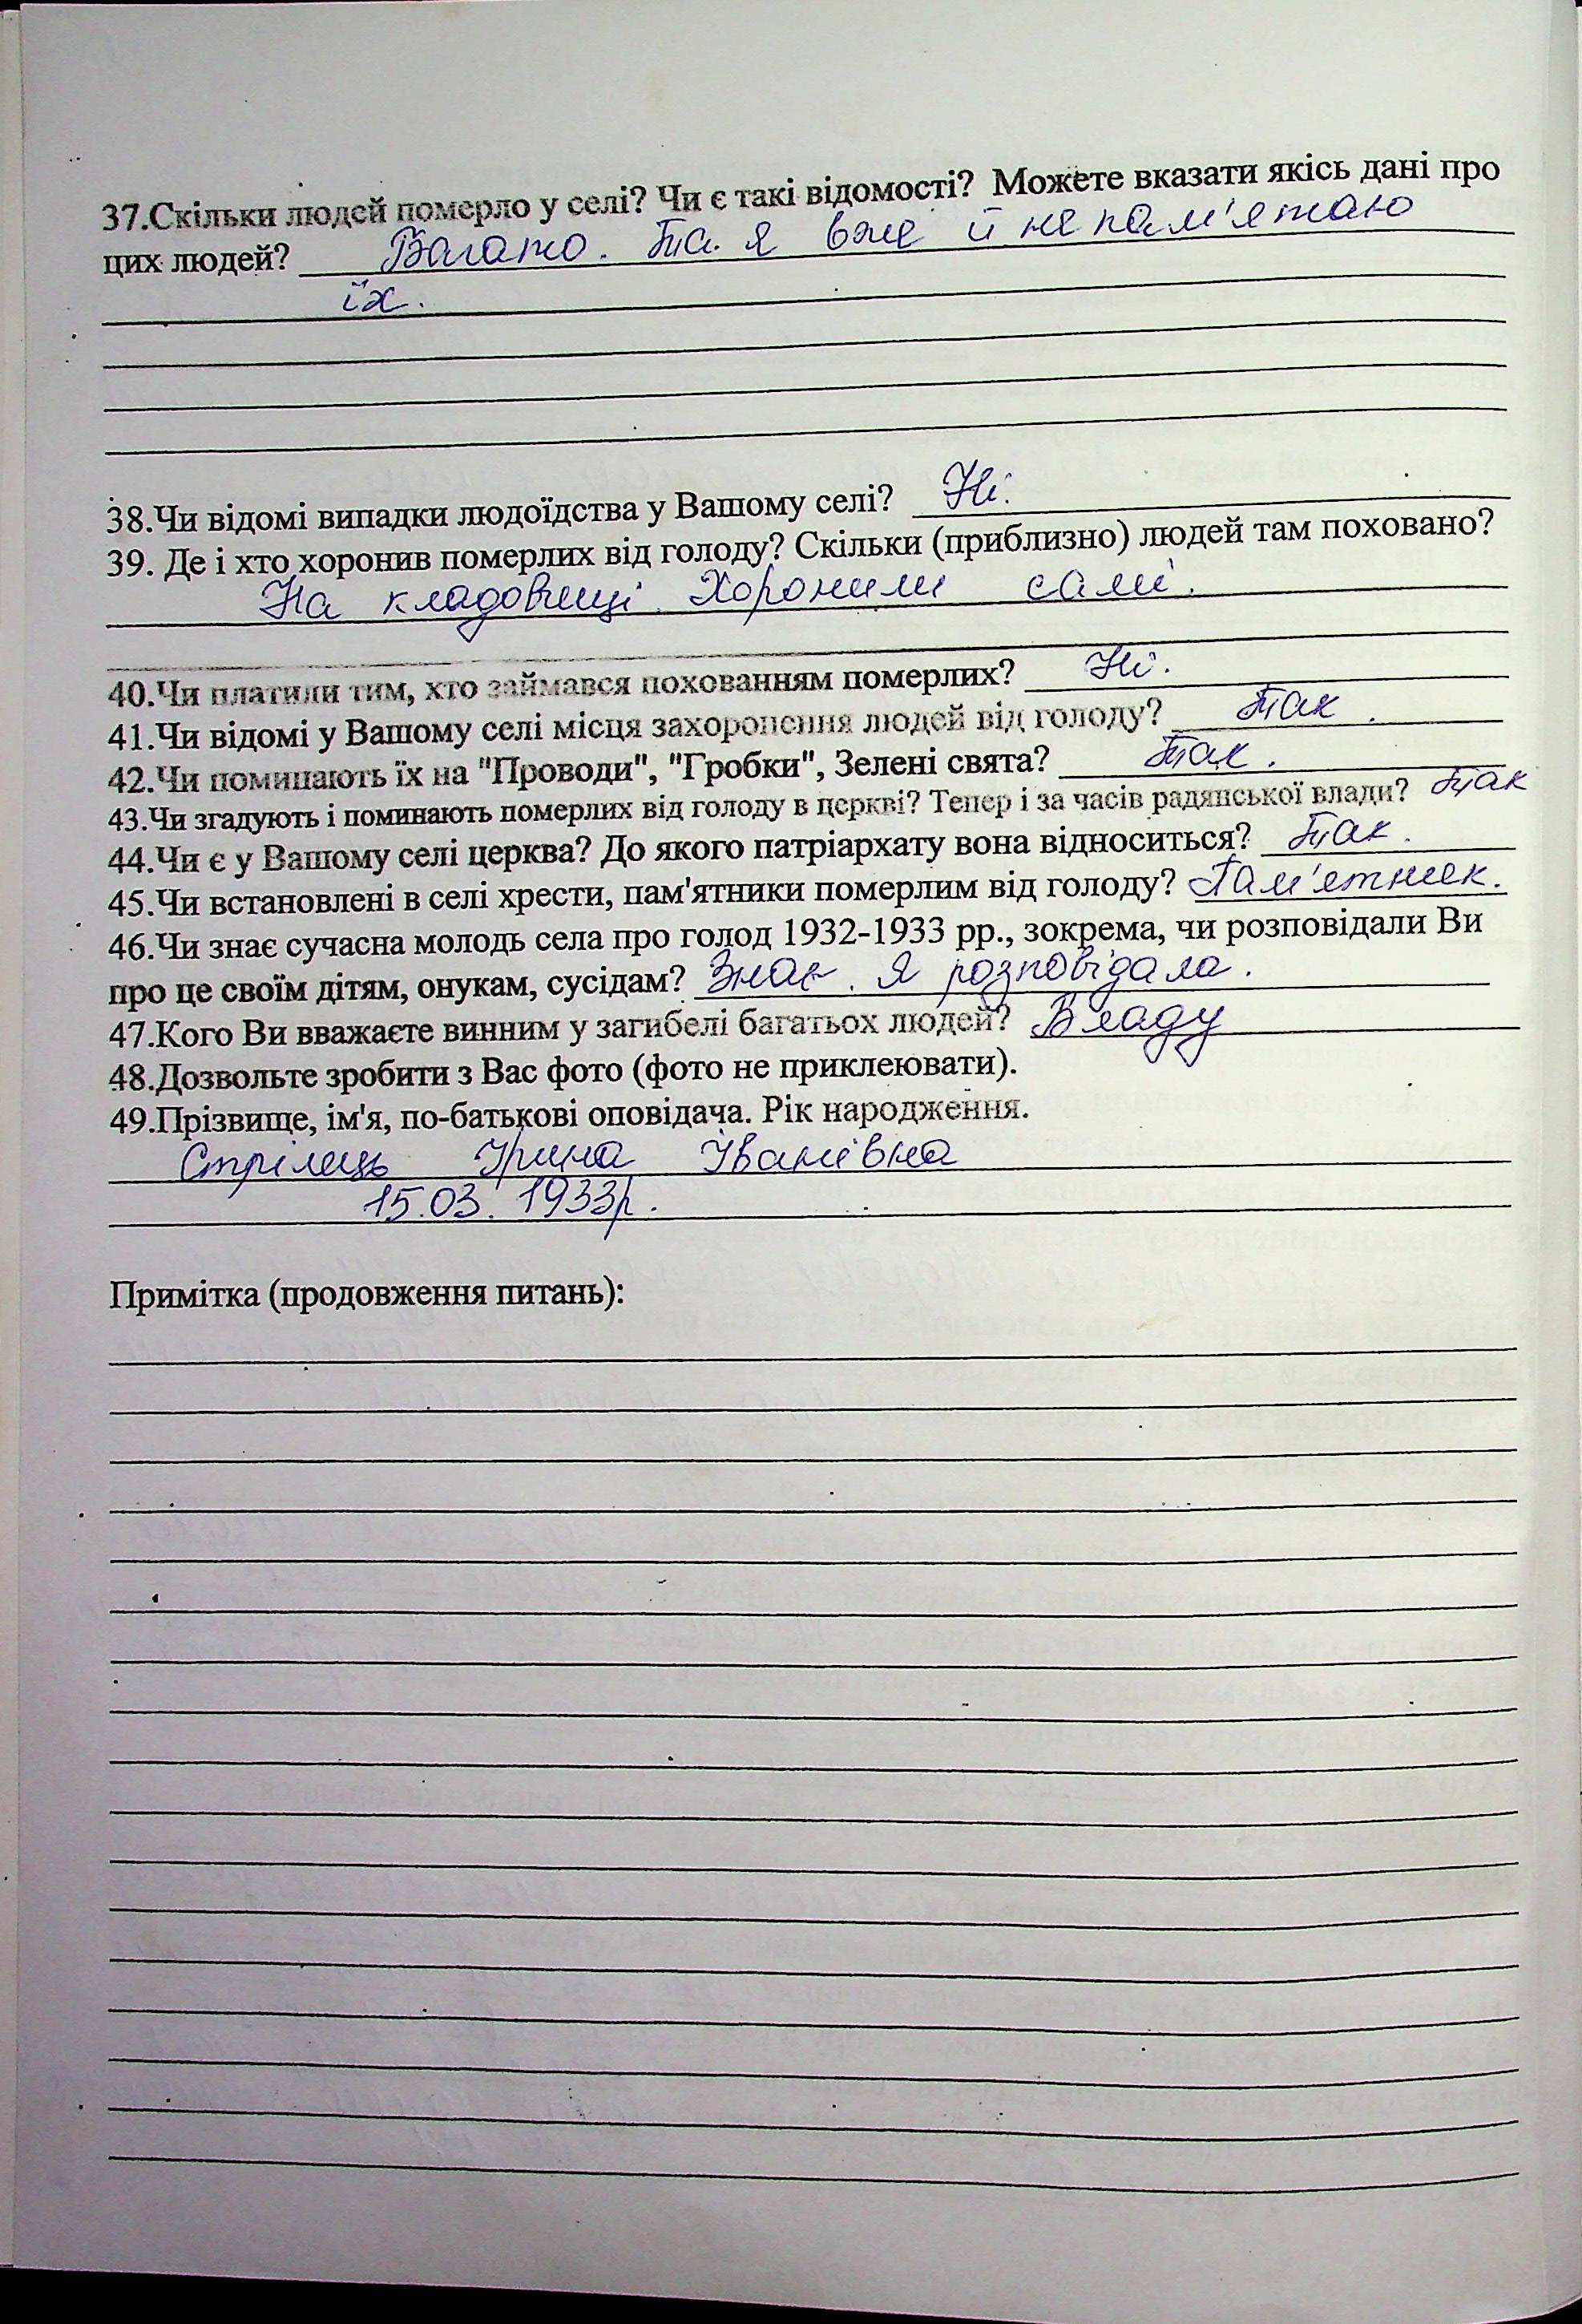 37.Скільки людей померло у селі? Чи є такі відомості? Можете вказати якісь дані про
цих людей? Багато. Та я вже й не пам'ятаю
їх.
38.Чи відомі випадки людоїдства у Вашому селі? Ні.
39. Де і хто хоронив померлих від голоду? Скільки (приблизно) людей там поховано?
На кладовищі. Хоронили самі.
40.Чи платили тим, хто займався похованням померлих? Ні.
41.Чи відомі у Вашому селі місця захоронення людей від голоду? Так.
42.Чи поминають їх на "Проводи", "Гробки", Зелені свята? Так.
43.Чи згадують і поминають померлих від голоду в церкві? Тепер і за часів радянської влади? Так
44.Чи є у Вашому селі церква? До якого патріархату вона відноситься? Так.
45.Чи встановлені в селі хрести, пам'ятники померлим від голоду? Пам'ятник.
46.Чи знає сучасна молодь села про голод 1932-1933 рр., зокрема, чи розповідали Ви
про це своїм дітям, онукам, сусідам? Знає. Я розповідала.
47.Кого Ви вважаєте винним у загибелі багатьох людей? Владу
48.Дозвольте зробити з Вас фото (фото не приклеювати).
49.Прізвище, ім'я, по-батькові оповідача. Рік народження.
Стрілець Ірина Іванівна
15.03.1933р.
Примітка (продовження питань):